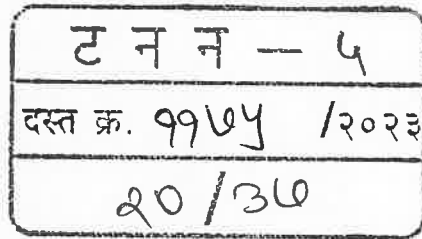 ट न न - ५
दस्त क्र. ११७५ /२०२३
२०/३७